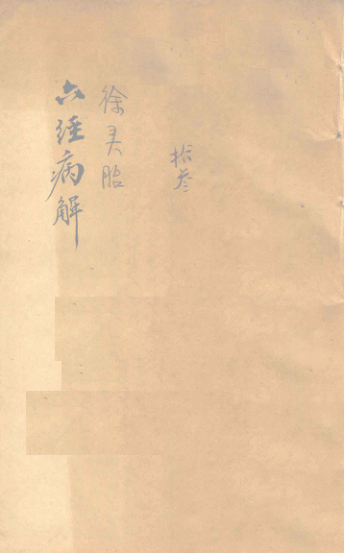 拾叁
徐灵胎
六经病解